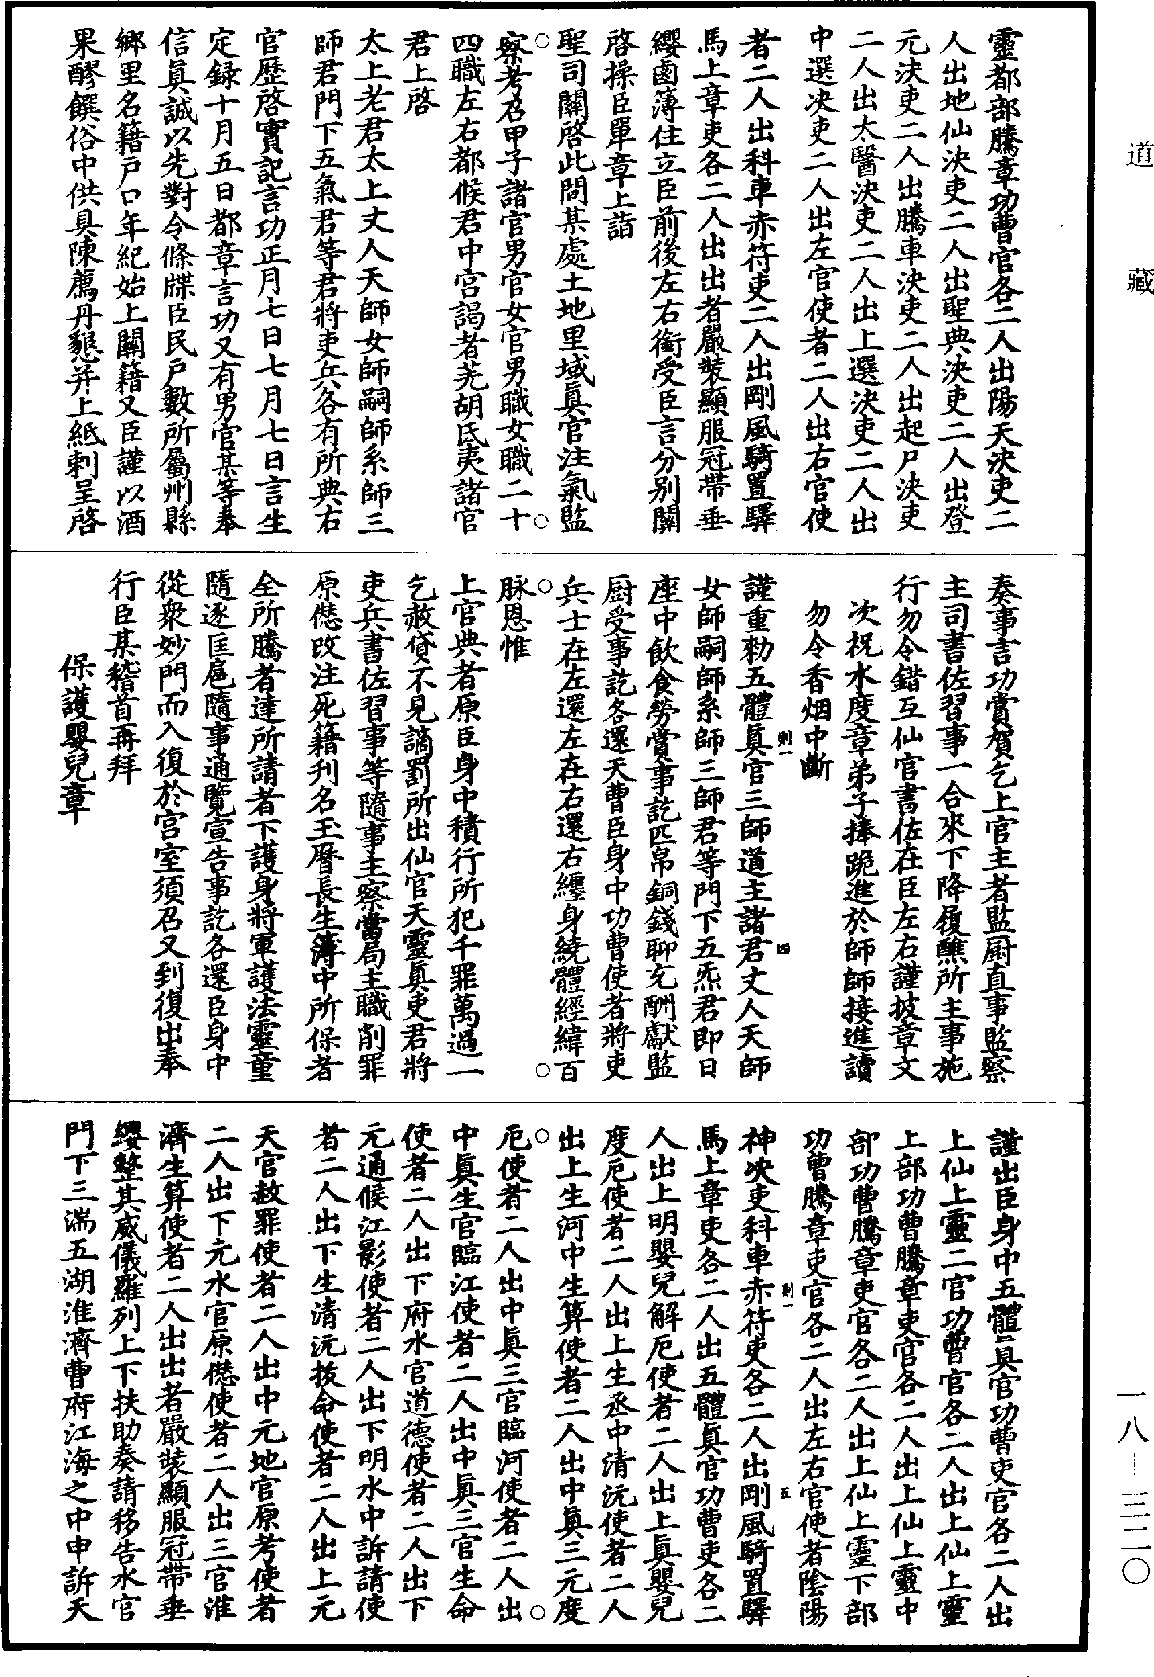 道藏
靈都部騰章功曹官各二人出陽天決吏二
人出地仙決吏二人出聖典決吏二人出登
元決吏二人出騰車決吏二人出起尸決吏
二人出太醫決吏二人出上選決吏二人出
中選決吏二人出左官使者二人出右官使
者二人出科車赤符吏二人出剛風騎置驛
馬上章吏各二人出出者嚴裝顯服冠帶垂
纓鹵簿住立臣前後左右銜受臣言分別關
啓操臣單章上詣
聖司關啓此間某處土地里域真官注氣監
察考召甲子諸官男官女官男職女職二十
四職左右都候君中宮謁者羌胡氐夷諸官
君上啓
太上老君太上丈人天師女師嗣師系師三
師君門下五氣君等君將吏兵各有所典右
官歷啓實記言功正月七日七月七日言生
定録十月五日都章言功又有男官某等奉
信真誠以先對今條牒臣民戶數所屬州縣
鄉里名籍戶口年紀始上關籍又臣謹以酒
果醪饌俗中供具陳薦丹懇并上紙剌呈啓
奏事言功賞賀乞上官主者監厨直事監察
主司書佐習事一合來下降履醮所主事施
行勿令錯互仙官書佐在臣左右謹披章文
次祝水度章弟子捧跪進於師師接進讀
勿令香烟中斷
謹重勑五體真官三師道主諸君丈人天師
女師嗣師系師三師君等門下五炁君即日
座中飲食勞賞事訖匹帛銅錢聊充酬獻監
厨受事訖各還天曹臣身中功曹使者將吏
兵士在左還左在右還右纏身繞體經緯百
脉恩惟
上官典者原臣身中積行所犯千罪萬過一
乞赦貸不見謫罰所出仙官天靈真吏君將
吏兵書佐習事等隨事主察當局主職削罪
原愆改注死籍刋名玉曆長生簿中所保者
全所騰者達所請者下護身將軍護法靈童
隨逐匡扈隨事通覽宣告事訖各還臣身中
從衆妙門而入復於宮室須召又到復出奉
行臣某稽首再拜
保護嬰兒章
謹出臣身中五體真官功曹吏官各二人出
上仙上靈二官功曹官各二人出上仙上靈
上部功曹騰章吏官各二人出上仙上靈中
部功曹騰章吏官各二人出上仙上靈下部
功曹騰章吏官各二人出左右官使者陰陽
神決吏科車赤符吏各二人出剛風騎置驛
馬上章吏各二人出五體真官功曹吏各二
人出上明嬰兒解厄使者二人出上真嬰兒
度厄使者二人出上生丞中清沅使者二人
出上生河中生算使者二人出中真三元度
厄使者二人出中真三官臨河使者二人出
中真生官臨江使者二人出中真三官生命
使者二人出下府水官道德使者二人出下
元通候江影使者二人出下明水中訴請使
者二人出下生清沅拔命使者二人出上元
天官赦罪使者二人出中元地官原考使者
二人出下元水官原愆使者二人出三官淮
濟生算使者二人出出者嚴裝顯服冠帶垂
纓整其威儀羅列上下扶助奏請移告水官
門下三湍五湖淮濟曹府江海之中申訴天
一八—三二〇